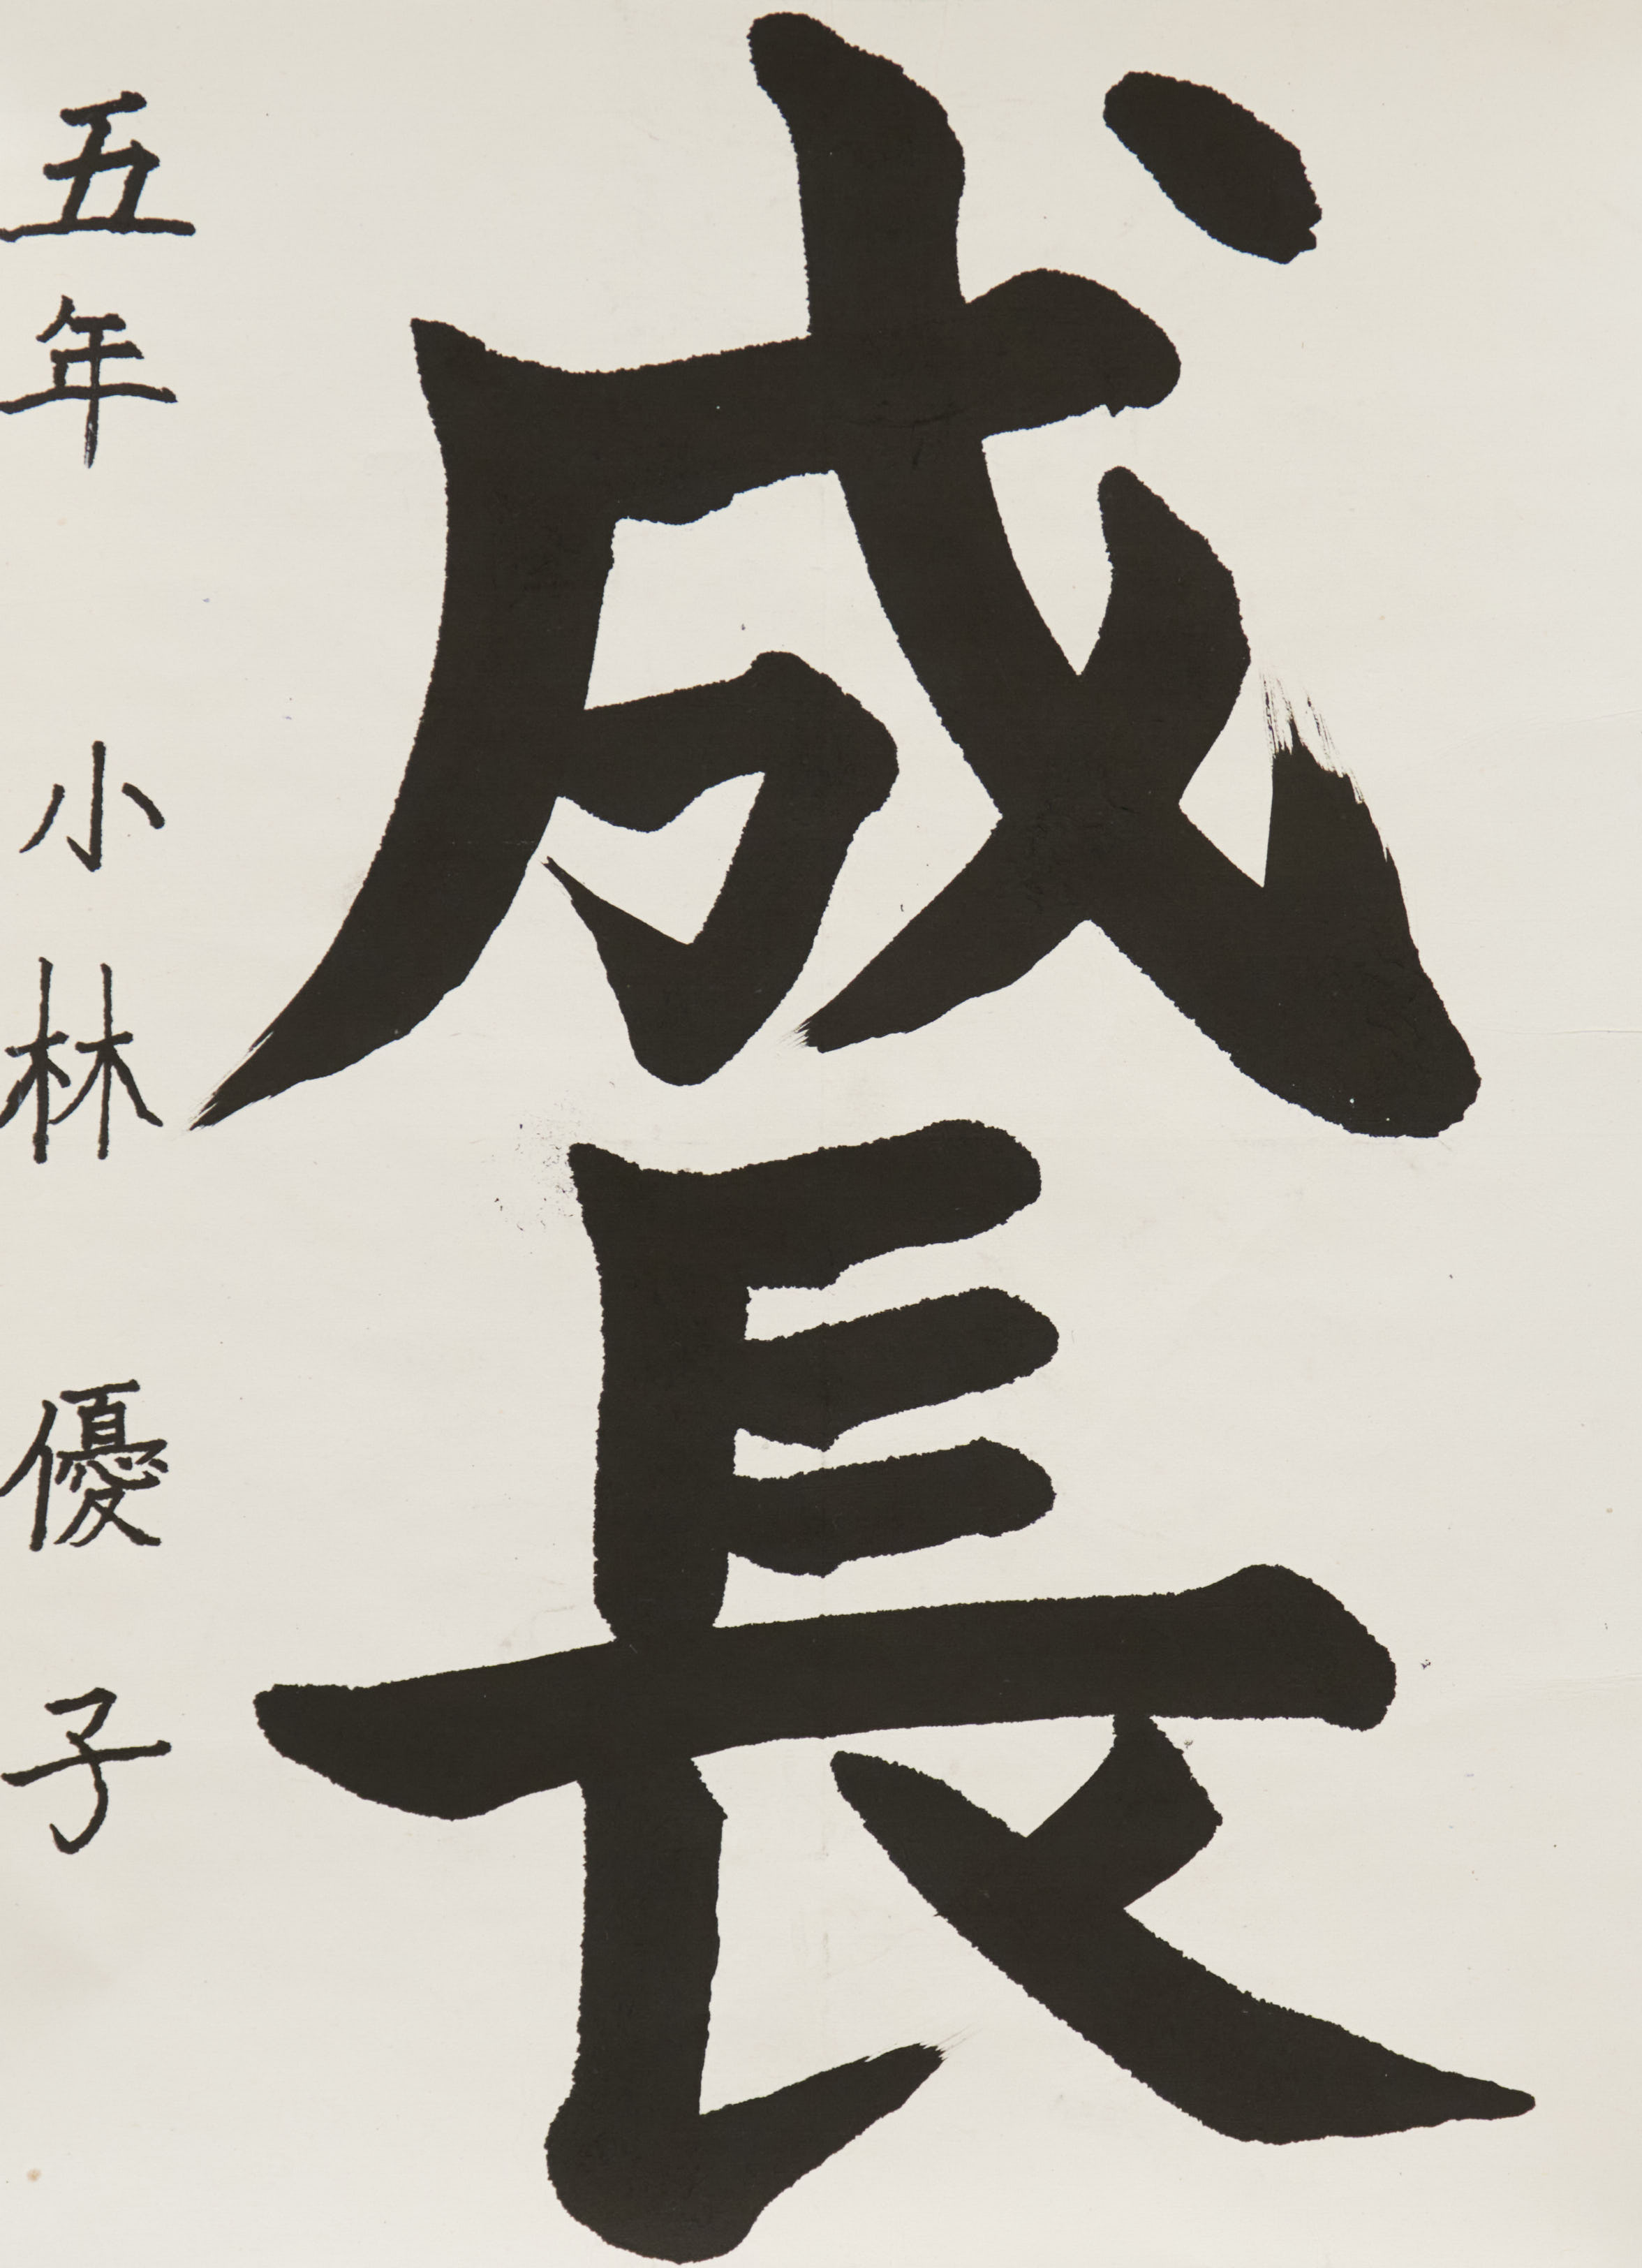 成長
五年 小林 優子